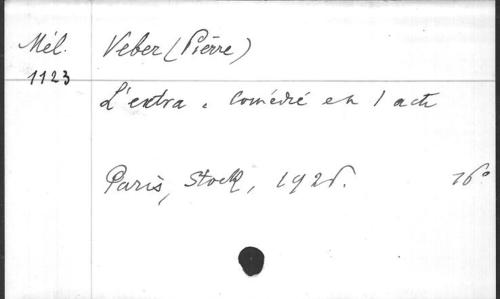 Mél. Veber (Pierre)
1123
L'extra. Comédie en 1 acte
Paris, Stock, 1925. 16°